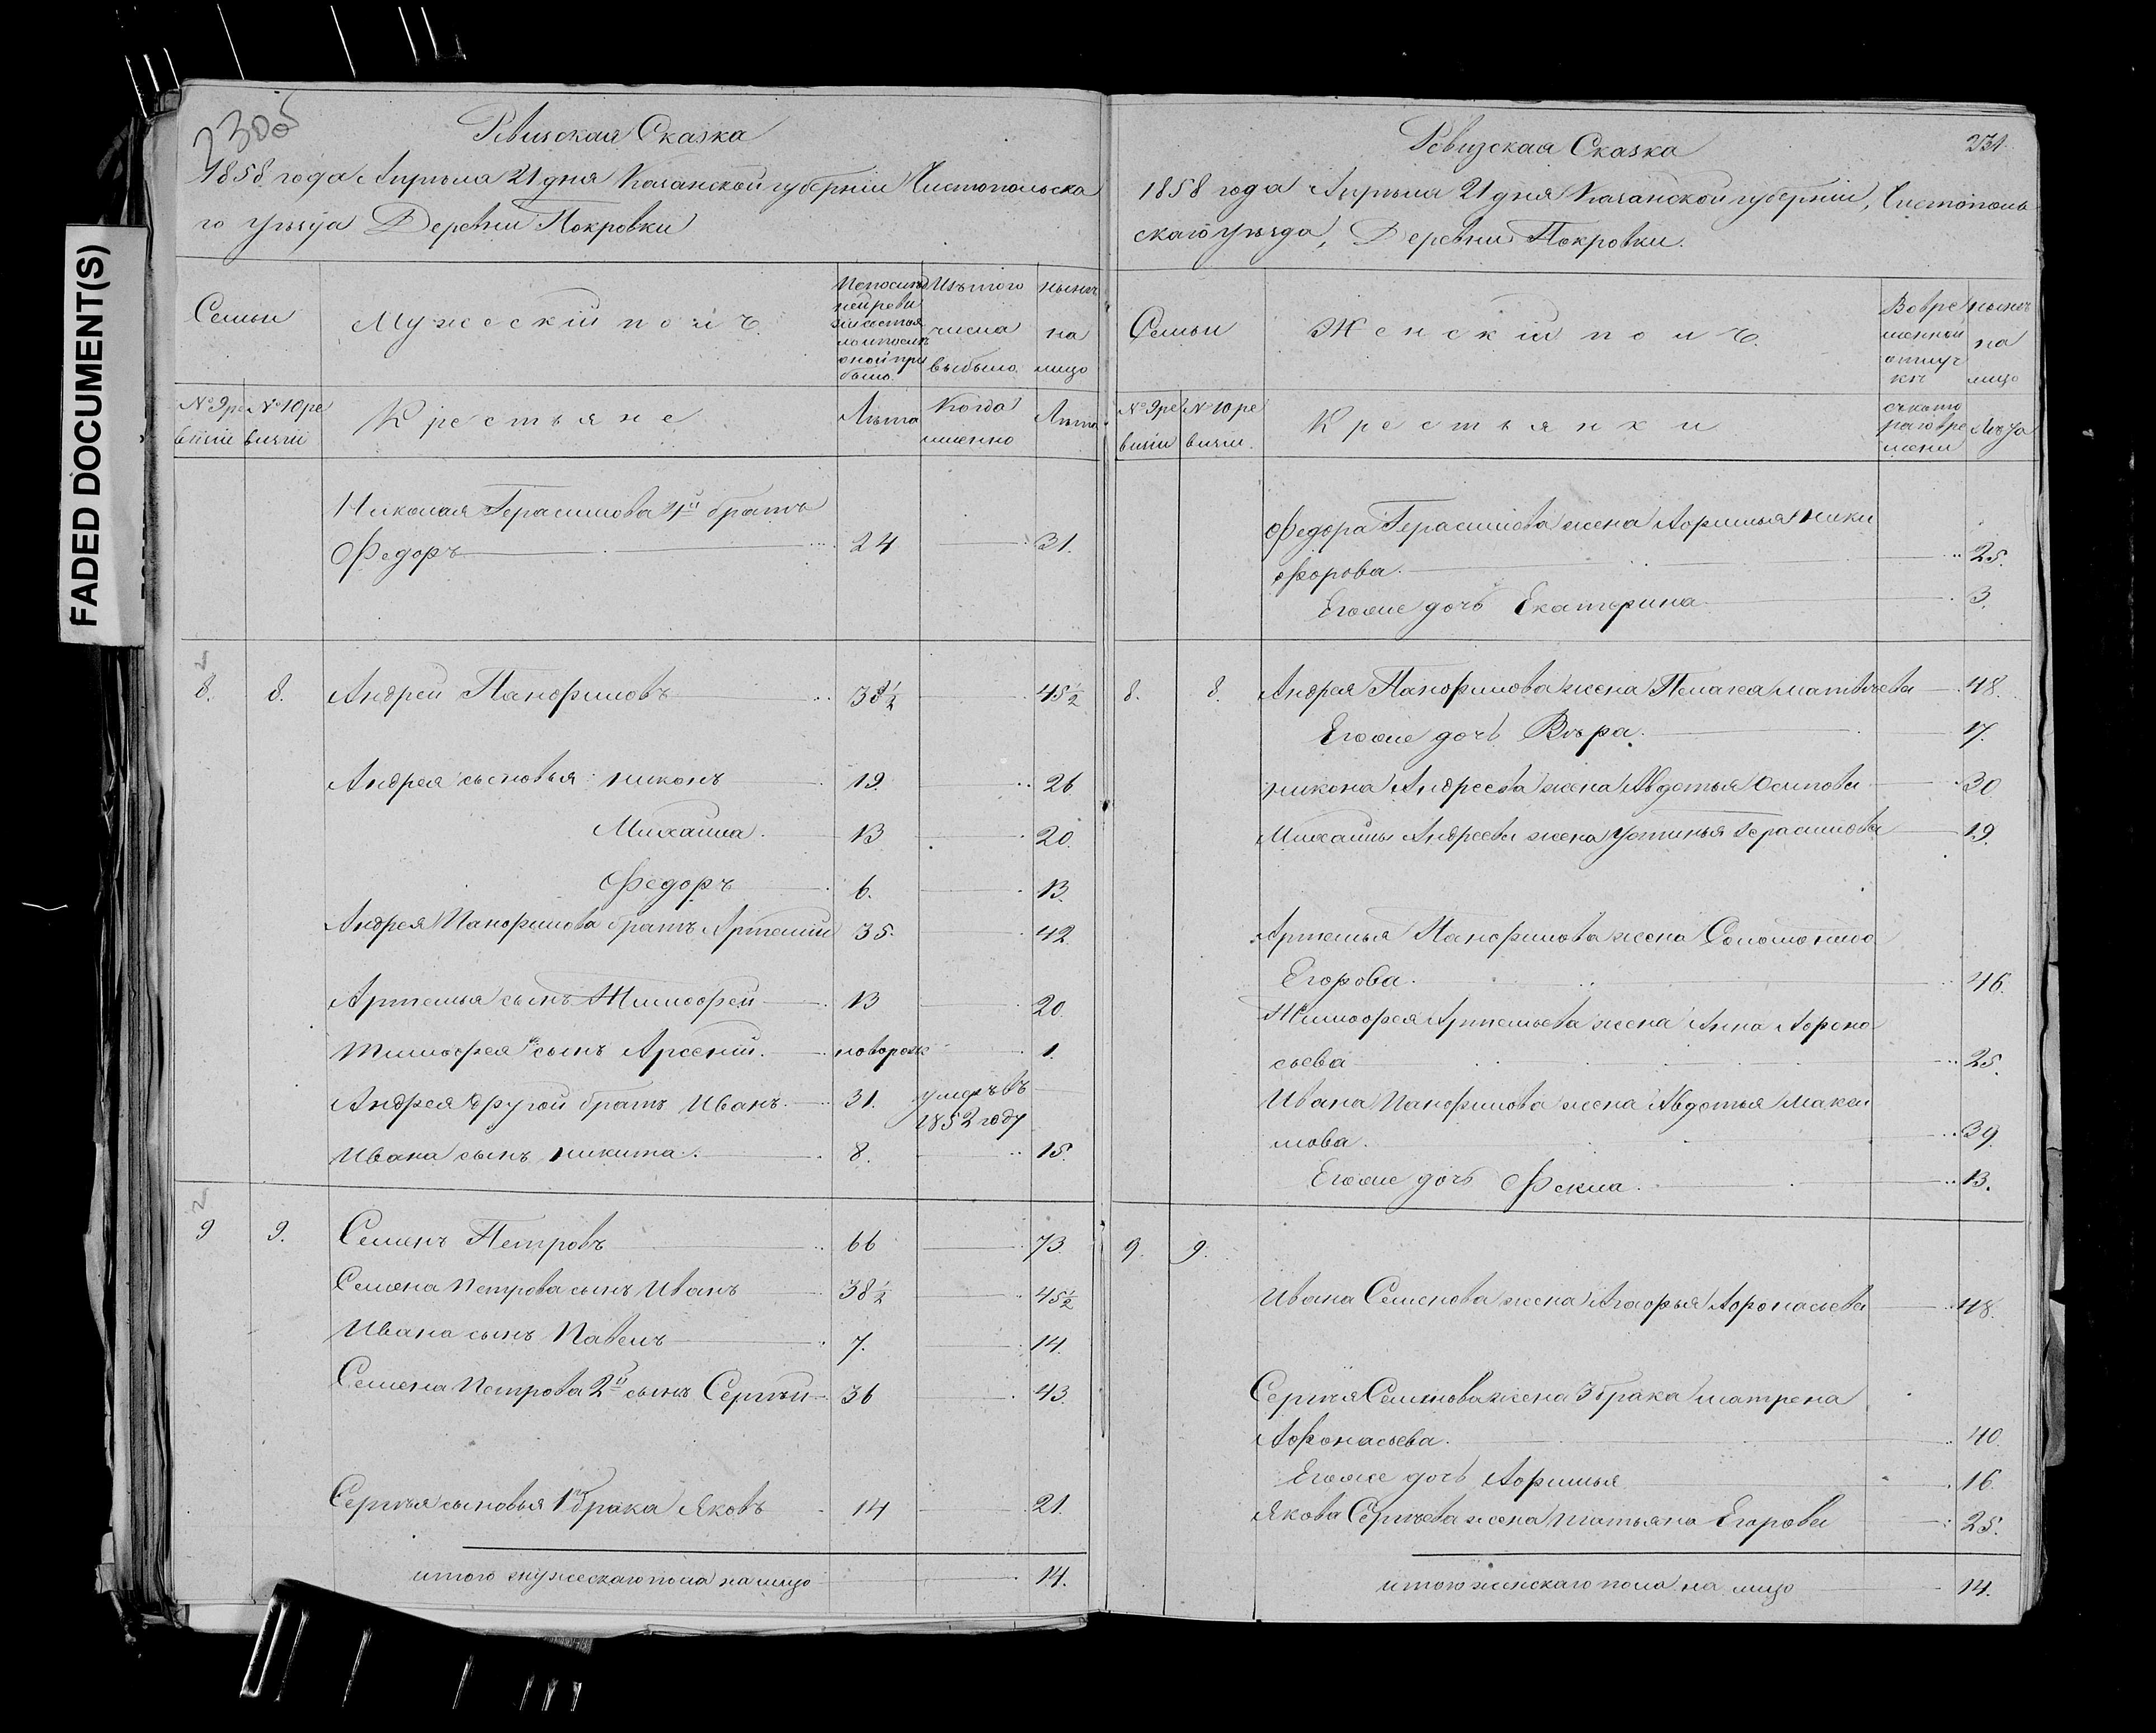 FADED DOCUMENT(S)
230об
Ревизская Сказка
1858 года Апреля 21 дня Казанской губерніи Чистопольска
го уезда Деревни Покровки
Семьи
Мужескій полъ
По послед
ней реви
зіи состоя
ло и после
оной при
было.
Изъ того
числа
выбыло.
ныне
на
лицо
№ 9 ре
визіи
№ 10 ре
визіи
Крестьяне
Лета
Когда
именно
Лета
Николая Герасимова 4й братъ
Федоръ 24 31.
8. 8. Андрей Панфиловъ 38½ 45½
Андрея сыновья: никонъ 19. 26
Михайла. 13 20.
Федоръ 6. 13.
Андрея Панфилова братъ Артемій 35. 42.
Артемья сынъ Тимофей 13 20.
Тимофея сынъ Арсеній. новорож 1.
Андрея другой братъ Иванъ. 31. умеръ въ
1852 году
Ивана сынъ никита. 8. 15.
9 9. Семенъ Петровъ 66 73.
Семена Петрова сынъ Иванъ 38½ 45½
Ивана сынъ Павелъ 7. 14.
Семена Петрова 2й сынъ Сергей 36 43.
Сергея сыновья 1го брака Яковъ 14 21.
итого мужескаго пола на лицо 14.
Ревизская Сказка
231.
1858 года Апреля 21 дня Казанской губерніи, Чистополь
скаго уезда, Деревни Покровки.
Семьи
Женскій полъ
Во вре
менной
отлуч
ке
ныне
на
лицо
№ 9 ре
визіи
№ 10 ре
визіи.
Крестьянки
съ кото
раго вре
мени
Лета
Федора Герасимова жена Афимья ники
форова. 25.
Егоже дочь Екатерина 3.
8. 8. Андрея Панфилова жена Пелагея матвеева 48.
Егоже дочь Вера. 17.
никона Андреева жена Авдотья Осипова 30
Михайлы Андреева жена Устинья Герасимова 19.
Артемья Панфилова жена Соломонида
Егорова. 46.
Тимофея Артемьева жена Анна Афона
сьева 25.
Ивана Панфилова жена Авдотья Макси
мова. 39.
Егоже дочь Фекла. 13.
9. 9.
Ивана Семенова жена Агафья Афонасьева 48.
Сергея Семенова жена 3 брака матрена
Афонасьева. 40.
Егоже дочь Афимья 16.
Якова Сергеева жена татьяна Егорова 25.
итого женскаго пола на лицо 14.